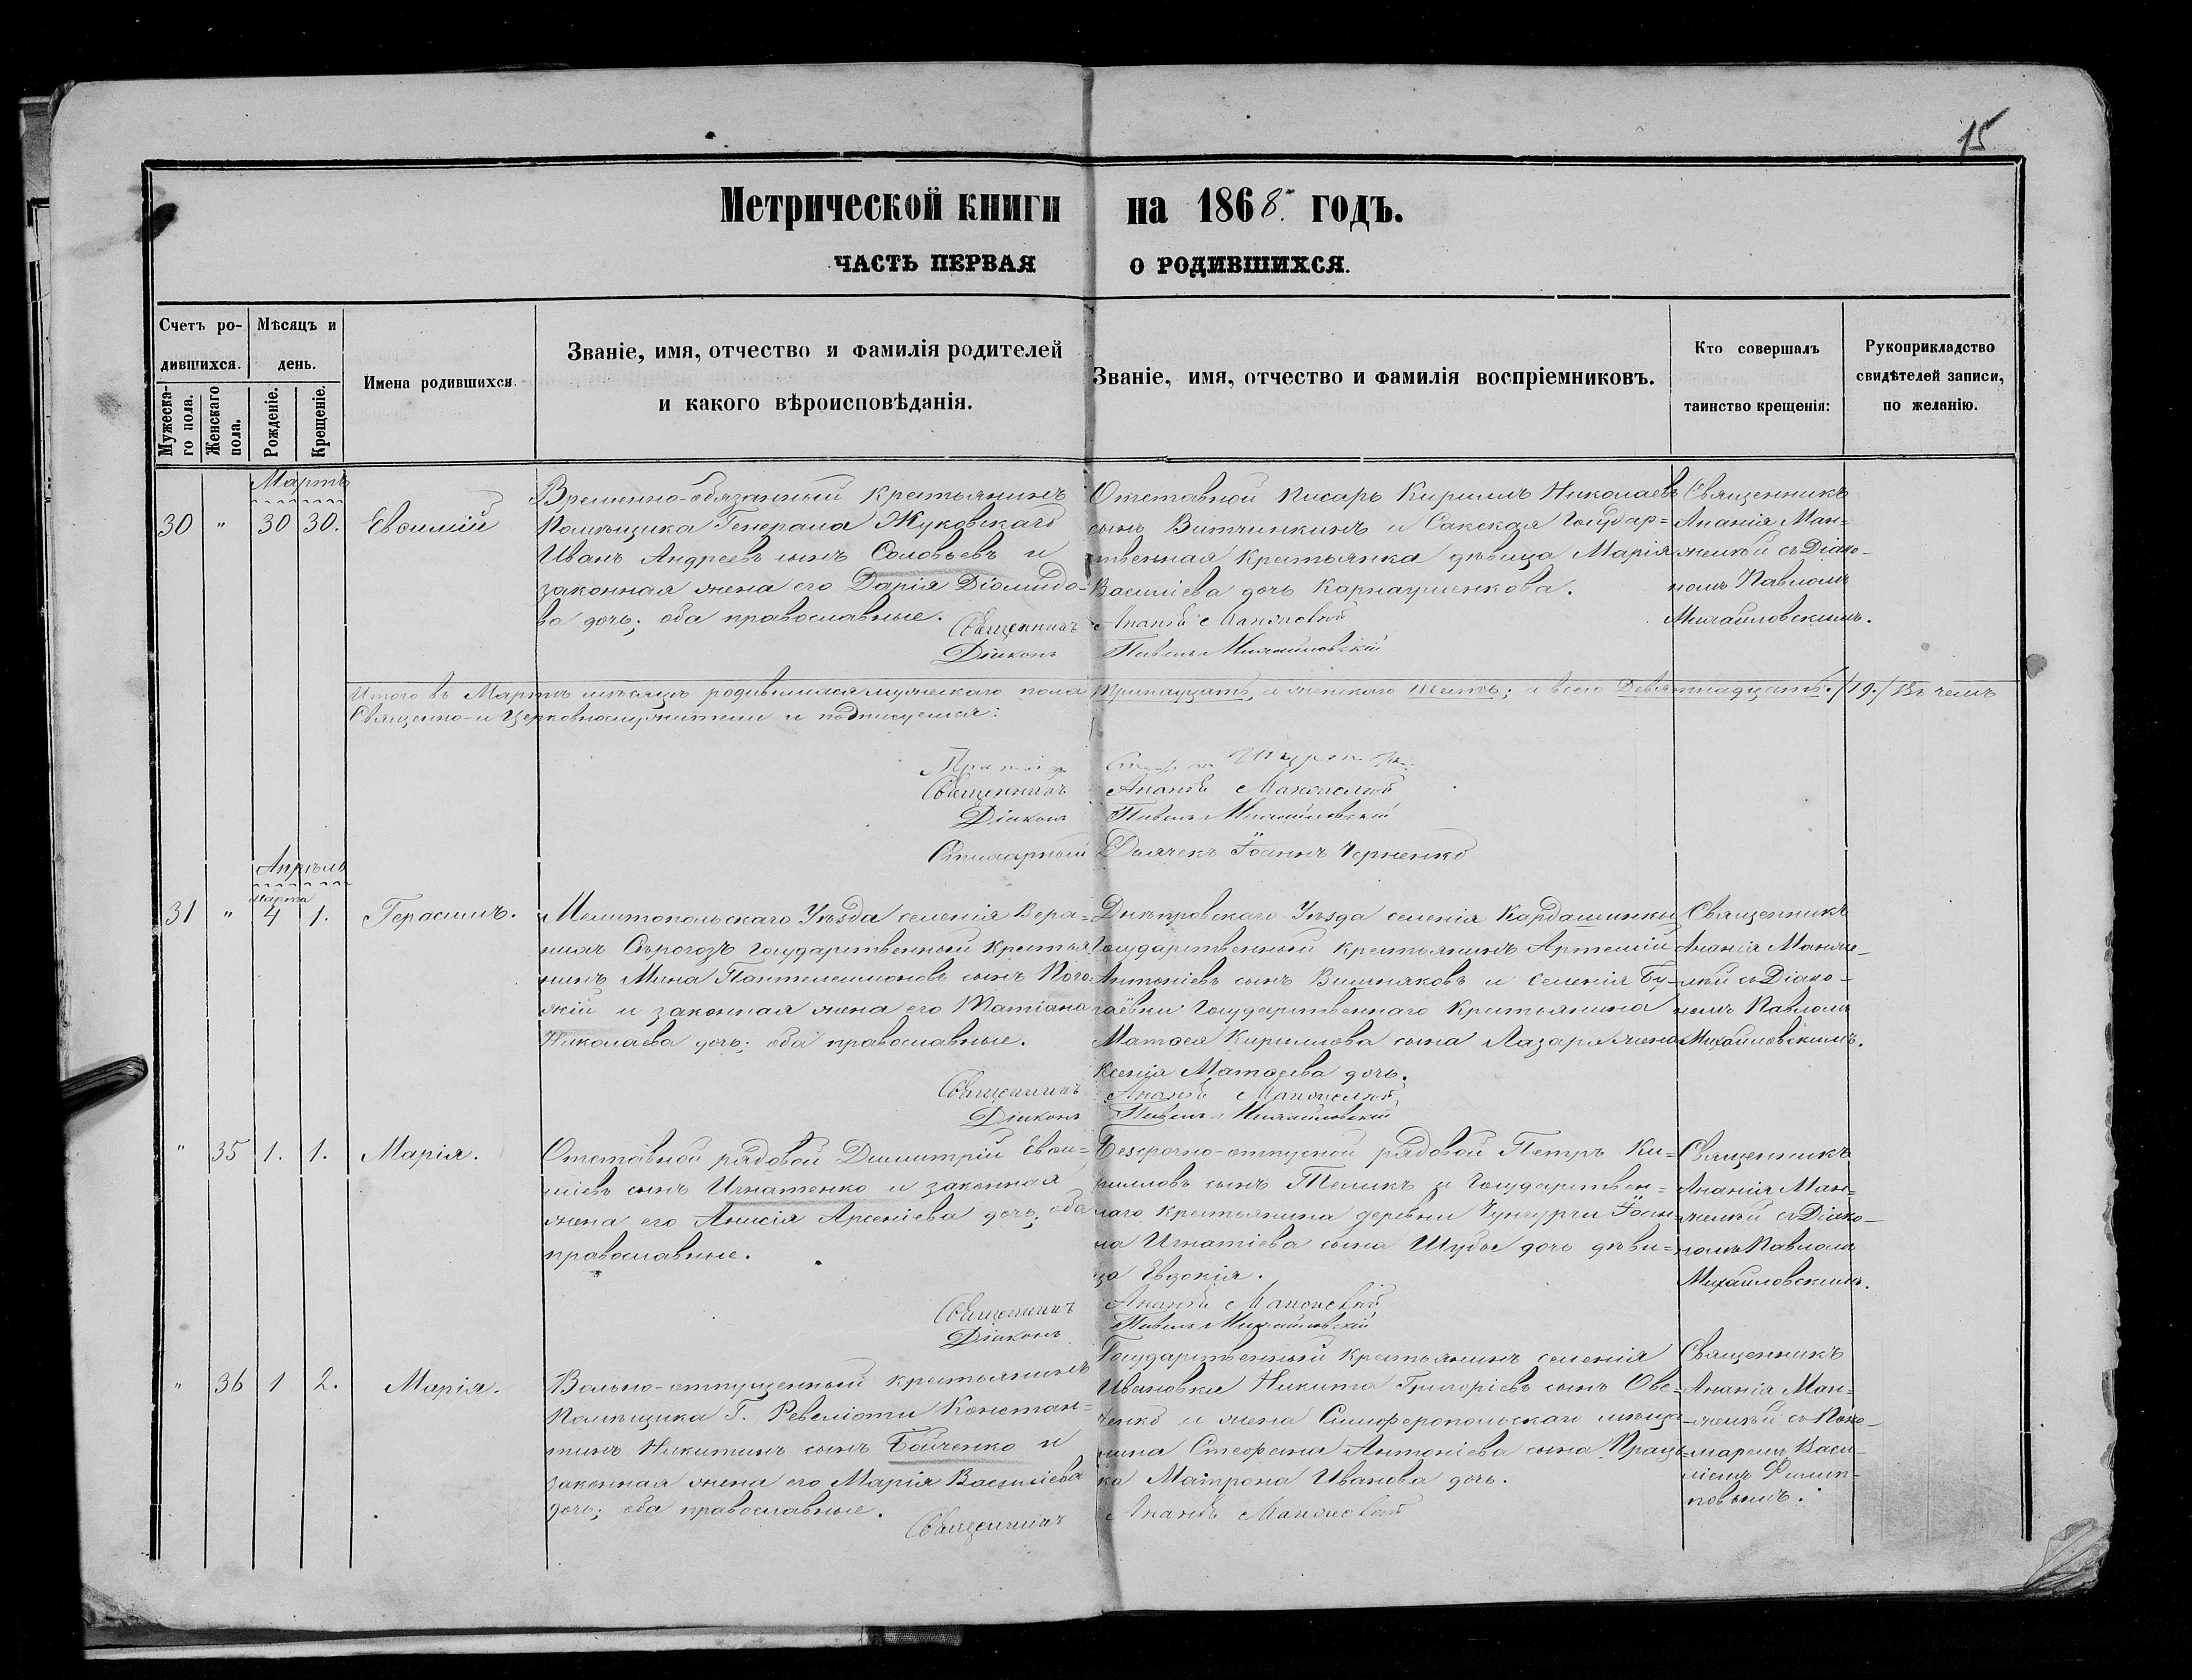 15
Метрической книги на 1868. годъ.
ЧАСТЬ ПЕРВАЯ О РОДИВШИХСЯ.
Счетъ родившихся.
Мужескаго пола.
Женскаго пола.
Мѣсяцъ и день.
Рожденіе.
Крещеніе.
Имена родившихся.
Званіе, имя, отчество и фамилія родителей
и какого вѣроисповѣданія.
Званіе, имя, отчество и фамилія воспріемниковъ.
Кто совершалъ
таинство крещенія:
Рукоприкладство
свидѣтелей записи,
по желанію.
Мартъ
30 " 30 30. Евѳимій
Временно-обязанный крестьянинъ
Помѣщика Генерала Жуковскаго
Иванъ Андреевъ сынъ Соловьевъ и
законная жена его Дарія Діомидо-
ва дочь; оба православные.
Отставной писарь Кириллъ Николаевъ
сынъ и Сакская Государ=
ственная крестьянка дѣвица Марія
Василіева дочь Карнаушенкова.
Священникъ
Ананія Ман=
желѣй съ Діако-
номъ Павломъ
Михайловскимъ.
Священникъ Ананій
Діаконъ Павелъ Михайловскій
Итого въ Мартѣ мѣсяцѣ родившихся мужескаго пола тринадцать, а женскаго шесть; а всего девятнадцать. /19./ Въ чемъ
Священно- и Церковнослужители и подписуемся:
Священникъ Ананій
Діаконъ Павелъ Михайловскій
Дьячекъ Іоаннъ Черненко
Апрѣль
31 " Марта 4 1. Герасимъ.
Мелитопольскаго Уѣзда селенія Верх-
нихъ Сѣрогозъ Государственный крестья-
нинъ Мина Пантелеимоновъ сынъ
и законная жена его Татіана
Николаева дочь; оба православные.
Днѣпровскаго Уѣзда селенія Кардашинки
Государственный крестьянинъ Артемій
Антоніевъ сынъ Вишняковъ и селенія
Государственнаго крестьянина
Матѳея Кириллова сына Лазаря жена
Ксенія Матѳеева дочь.
Священникъ
Ананія Манже-
лѣй съ Діако-
номъ Павломъ
Михайловскимъ.
Священникъ Ананій
Діаконъ Павелъ Михайловскій
" 35 1. 1. Марія.
Отставной рядовой Димитрій Евѳи-
міевъ сынъ Игнатенко и законная
жена его Анисія Арсеніева дочь; оба
православные.
Безсрочно-отпускной рядовой Петръ Ки-
рилловъ сынъ Теликъ и Государствен-
наго крестьянина деревни Чунгурчи Іоан-
на Игнатіева сына Шубы дочь дѣви-
ца Евдокія.
Священникъ
Ананія Ман=
желѣй съ Діако-
номъ Павломъ
Михайловскимъ.
Священникъ Ананій
Діаконъ Павелъ Михайловскій
" 36 1 2. Марія.
Вольно-отпущенный крестьянинъ
Помѣщика Г. Ревеліоти Констан-
тинъ Никитинъ сынъ Бойченко и
законная жена его Марія Василіева
дочь; оба православные.
Государственный крестьянинъ селенія
Ивановки Никита Григоріевъ сынъ Ове-
ченко и жена Симферопольскаго мѣща-
нина Стефана Антоніева сына
Матрона Иванова дочь.
Священникъ
Ананія Ман=
желѣй съ Поно-
маремъ Васи-
ліемъ Филип-
повымъ.
Священникъ Ананій